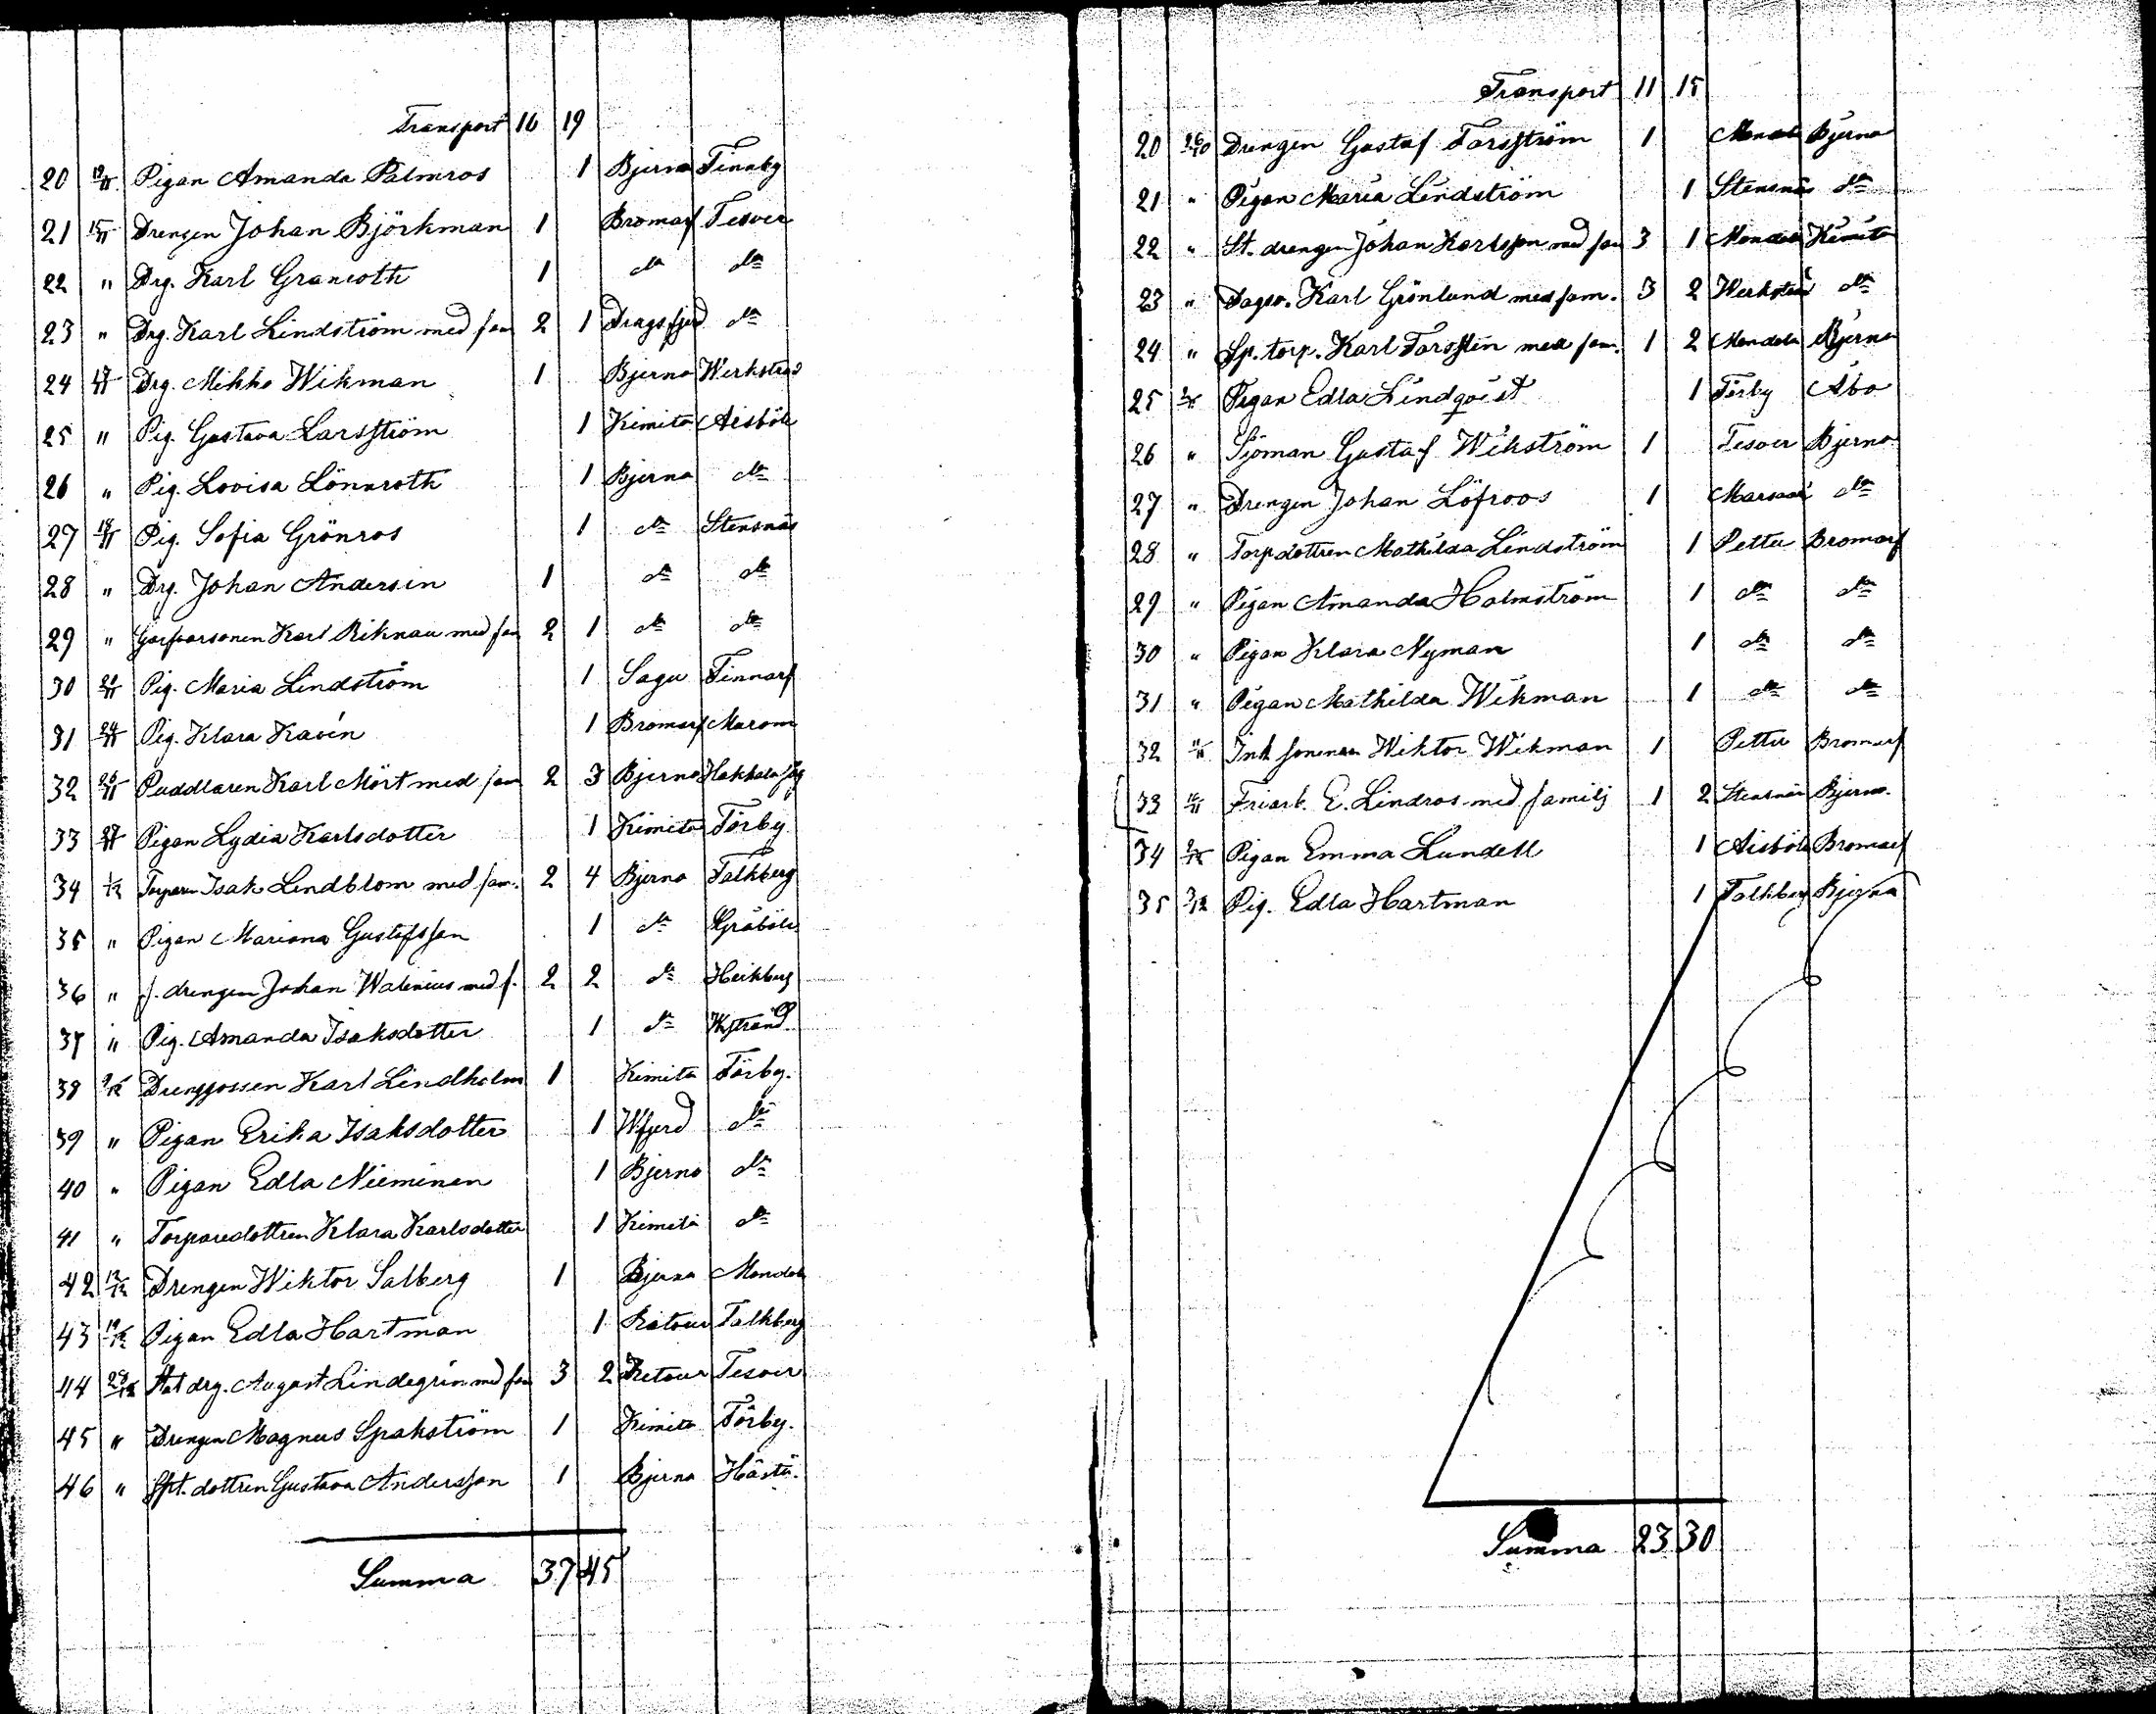 Transport 16 19
20 19/11 Pigan Amanda Palmros 1 Bjerno Finnby
21 15/11 Drengen Johan Björkman 1 Bromarf Tesver
22 " Drg. Karl Granroth 1 do do
23 " Drg. Karl Lindström med fam 2 1 Dragsfjerd do
24 17/11 Drg. Mikko Wikman 1 Bjerno Werksters
25 " Pig. Gustava Larsström 1 Kimito Aisböle
26 " Pig. Lovisa Lönnroth 1 Bjerno do
27 18/11 Pig. Sofia Grönros 1 do Stensnäs
28 " Drg. Johan Andersin 1 do do
29 " Karl Riknau med fam 2 1 do do
30 21/11 Pig. Maria Lindström 1 Sagu Finnarf
31 24/11 Pig. Klara Kavén 1 Bromarf Marom
32 26/11 Puddlaren Karl Mört med fam 2 3 Bjerno
33 27/11 Pigan Lydia Karlsdotter 1 Kimito Förby
34 1/12 Torparen Isak Lindblom med fam. 2 4 Bjerno Falkberg
35 " Pigan Mariana Gustafsson 1 do Gråböle
36 " f. drengen Johan Walenius med f. 2 2 do Heikberg
37 " Pig. Amanda Isaksdotter 1 do Wstrand
38 9/12 Drenggossen Karl Lindholm 1 Kimito Förby.
39 " Pigan Erika Isaksdotter 1 Wfjerd do
40 " Pigan Edla Nieminen 1 Bjerno do
41 " Torparedottren Klara Karlsdotter 1 Kimito do
42 12/12 Drengen Wiktor Salberg 1 Bjerno Mondola
43 19/12 Pigan Edla Hartman 1 Retour Falkberg
44 28/12 Stat drg. August Lindegrén med fam 3 2 Retour Tesver
45 " Drengen Magnus Spakström 1 Kimito Förby.
46 " Spt. dottren Gustava Andersson 1 Bjerno Hästö.
Summa 37 45
Transport 11 15
20 26/10 Drengen Gustaf Forsström 1 Mondola Bjerno
21 " Pigan Maria Lindström 1 Stensnäs do
22 " St. drengen Johan Karlsson med fam 3 1 Mondola Kimito
23 " Dagsv. Karl Grönlund med fam. 3 2 Werksters do
24 " Sp. torp. Karl Forsstén med fam. 1 2 Mondola Bjerno
25 Pigan Edla Lindqvist 1 Förby Åbo
26 " Sjöman Gustaf Wikström 1 Tesver Bjerno
27 " Drengen Johan Löfroos 1 do
28 " Torpdottren Mathilda Lindström 1 Pettu Bromarf
29 " Pigan Amanda Holmström 1 do do
30 " Pigan Klara Nyman 1 do do
31 " Pigan Mathilda Wikman 1 do do
32 Inh. sonen Wiktor Wikman 1 Pettu Bromarf
33 Friarb. E. Lindros med familj 1 2 Stensnäs Bjerno.
34 2/12 Pigan Emma Lundell 1 Aisböle Bromarf
35 3/12 Pig. Edla Hartman 1 Falkberg Bjerno
Summa 23 30